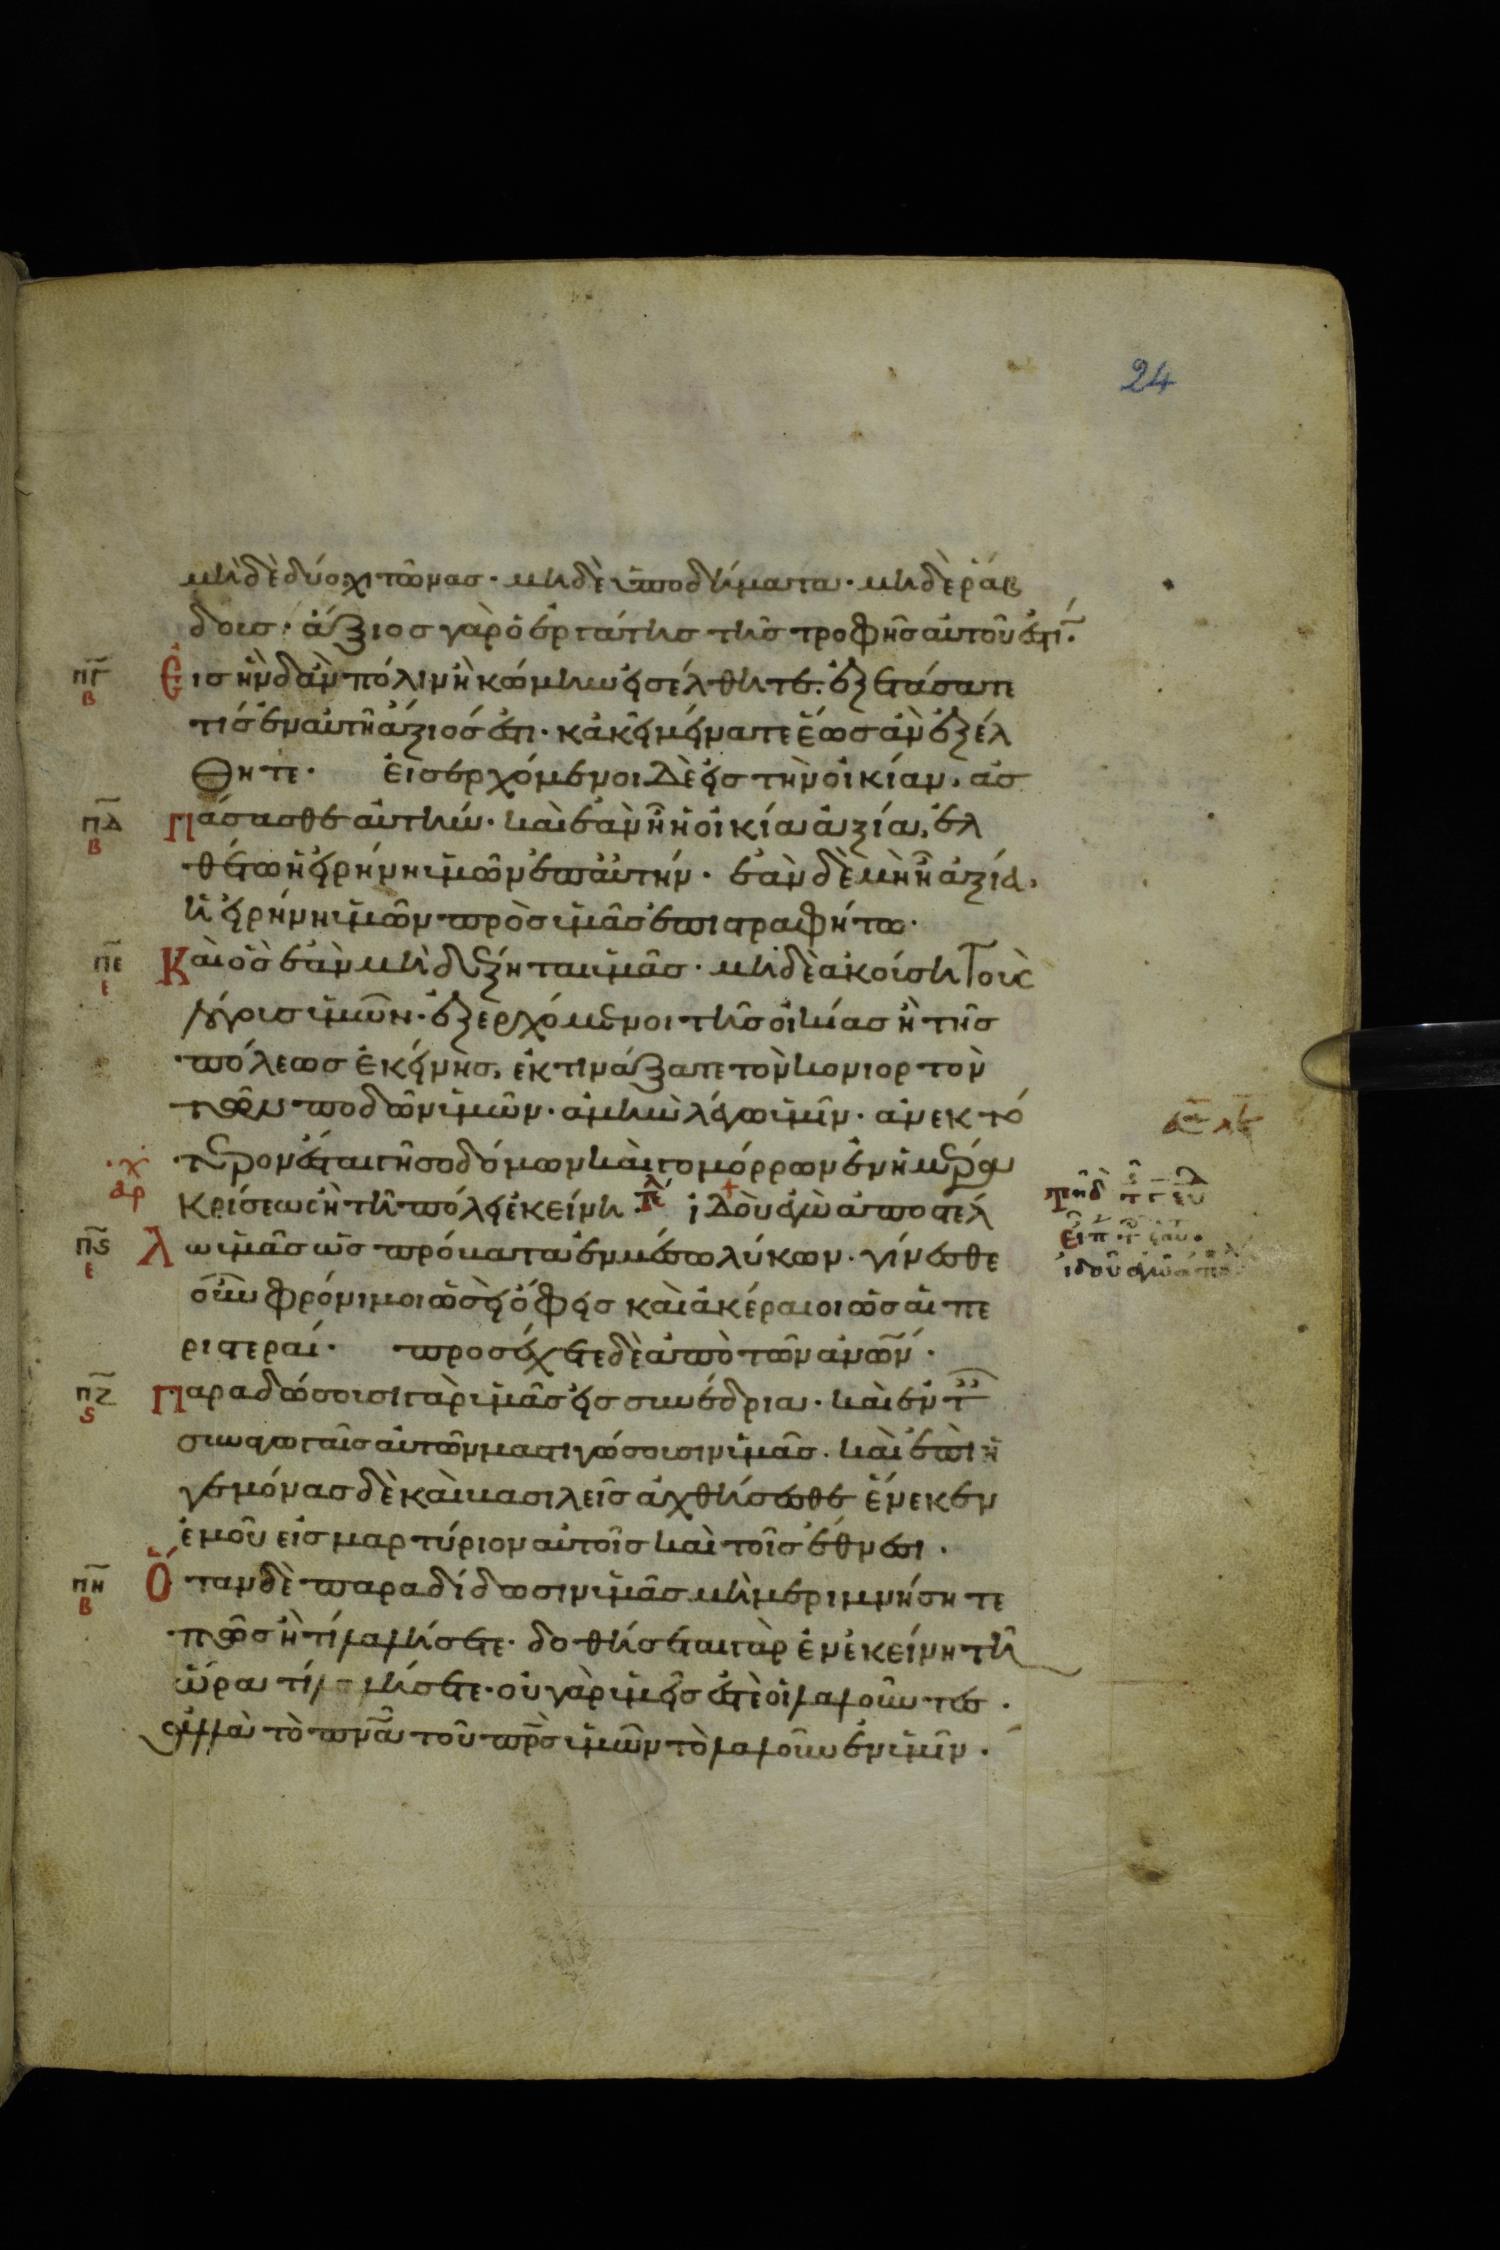 24
μηδὲ δύο χιτῶνας · μηδὲ ὑποδήματα · μηδὲ ῥάβ
δους · ἄξιος γὰρ ὁ ἐργάτης τῆς τροφῆς αὐτοῦ ἐστί ·
πγ β Εἰς ἣν δἂν πόλιν ἢ κώμην εἰσέλθητε · ἐξετάσατε
τίς ἐν αὐτῇ ἄξιός ἐστι · κἀκεῖ μείνατε ἕως ἂν ἐξέλ
θητε · εἰσερχόμενοι δὲ εἰς τὴν οἰκίαν, ἀσ
πδ β Πάσασθε αὐτήν · καὶ ἐὰν ᾖ ἡ οἰκία ἀξία, ἐλ
θέτω ἡ εἰρήνη ὑμῶν ἐπ αὐτήν · ἐὰν δὲ μὴ ᾖ ἀξία,
ἡ εἰρήνη ὑμῶν πρὸς ὑμᾶς ἐπιστραφήτω ·
πε ε Καὶ ὃς ἐὰν μὴ δέξηται ὑμᾶς · μηδὲ ἀκούση τοὺς
λόγους ὑμῶν · ἐξερχόμενοι τῆς οἰκίας ἢ τῆς
πόλεως ἐκείνης, ἐκτινάξατε τὸν κονιορτὸν
τῶν ποδῶν ὑμῶν · ἀμὴν λέγω ὑμῖν · ἀνεκτό
τερον ἔσται γῆ σοδόμων καὶ γομόρρων ἐν ἡμέρα
χ αρ κρίσεως ἢ τῆ πόλει ἐκείνη · τλ ἰδοὺ ἐγὼ ἀποστέλ
πϛ ε λω ὑμᾶς ὡς πρόβατα ἐν μέσω λύκων · γίνεσθε
οὖν φρόνιμοι ὡς οἱ ὄφεις καὶ ἀκέραιοι ὡς αἱ πε
ριστεραί · προσέχετε δὲ ἀπὸ τῶν ἀνων ·
πζ ϛ Παραδώσουσι γὰρ ὑμᾶς εἰς συνέδρια · καὶ ἐν τ
συναγωγαῖς αὐτῶν μαστιγώσουσιν ὑμᾶς · καὶ ἐπὶ ἡ
γεμόνας δὲ καὶ βασιλεῖς ἀχθήσεσθε ἕνεκεν
ἐμοῦ εἰς μαρτύριον αὐτοῖς καὶ τοῖς ἔθνεσι ·
πη β Ὅταν δὲ παραδίδωσιν ὑμᾶς μὴ μεριμνήσητε
πῶς ἢ τί λαλήσετε · δοθήσεται γὰρ ἐν ἐκείνη τῆ
ὥρα τί λαλήσετε · οὐ γὰρ ὑμεῖς ἐστὲ οἱ λαλοῦντες ·
ἀλλὰ τὸ πνα τοῦ πρς ὑμῶν τὸ λαλοῦν ἐν ὑμῖν ·
εἶπ
ἰδοὺ ἐγὼ ἀπο